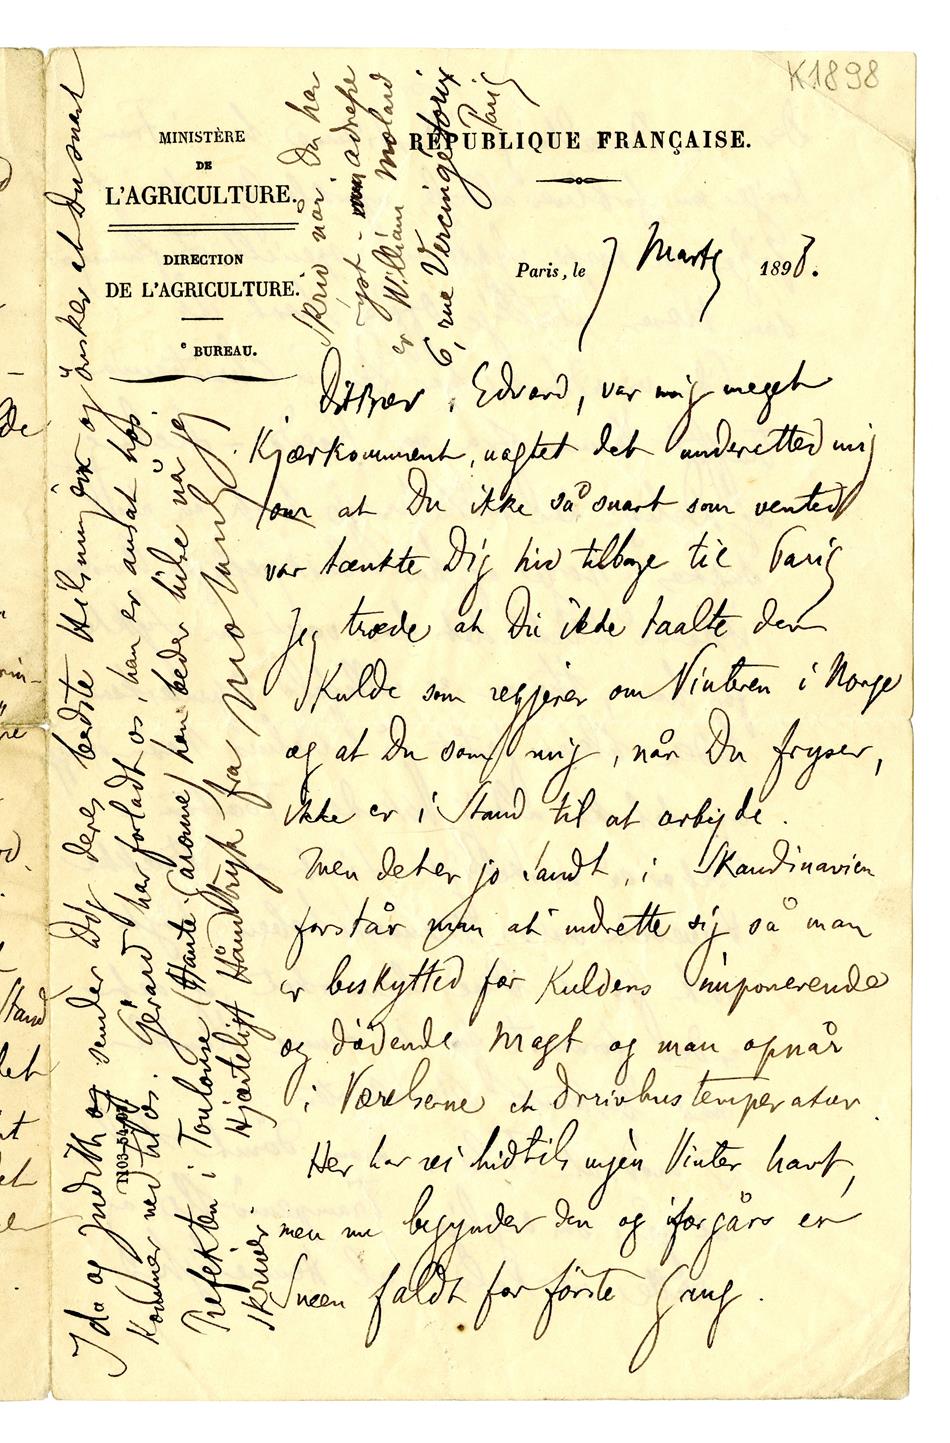 K1898
MINISTÈRE
DE
L'AGRICULTURE.
DIRECTION
DE L'AGRICULTURE.
e BUREAU.
RÉPUBLIQUE FRANÇAISE.
Paris, le 7 Marts 1898.
Dit Brev, Edvard, var mig meget
Kjærkomment, uagtet det underetted mig
om at Du ikke så snart som vented
var tænkte Dig hid tilbage til Paris
Jeg træde at Du ikke taalte den
Kulde som regjerer om Vinteren i Norge
og at Du som mig, når Du fryser,
ikke er i Stand til at arbejde.
Men det er jo Sandt, i Skandinavien
forstår man at indrette sig så man
er beskytted for Kuldens imponerende
og dødende Magt og man opnår
i Værelserne en Drivhustemperatur.
Her har vi hidtils ingen Vinter havt,
men nu begynder den og iforgårs er
Sneen faldt for første Gang.
Ida og Judith og sender Dig deres bedste Hilsninger og ønsker at Du snart
Kommer ned til os. Gérard har forladt os, han er ansat hos
Prefekten i Toulouse (Haute Garonne) han beder hilse når jeg
skriver. Hjerteligt Håndtryk fra Molard
1103-54-97
Skriv når Du har
lyst - min adresse
er William Molard
6, rue Vercingétorix
Paris